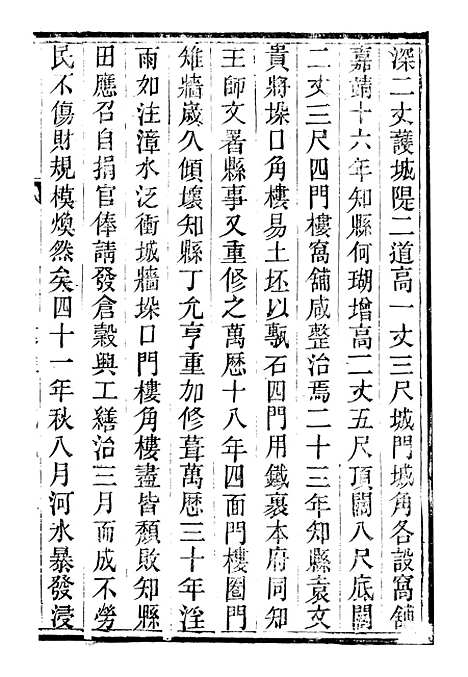 深二丈護城隄二道高一丈三尺城門城角各設窩舖
嘉靖十六年知縣何瑚增高二丈五尺頂闊八尺底闊
二丈三尺四門樓窩舖咸整治焉二十三年知縣袁文
貴將垛口角樓易土坯以甎石四門用鐵裹本府同知
王師文署縣事又重修之萬厯十八年四面門樓圈門
雉牆歲久傾壞知縣丁允亨重加修葺萬厯三十年淫
雨如注漳水泛衝城牆垛口門樓角樓盡皆頹敗知縣
田應召自捐官俸請發倉穀興工繕治三月而成不勞
民不傷財規模煥然矣四十一年秋八月河水暴發浸